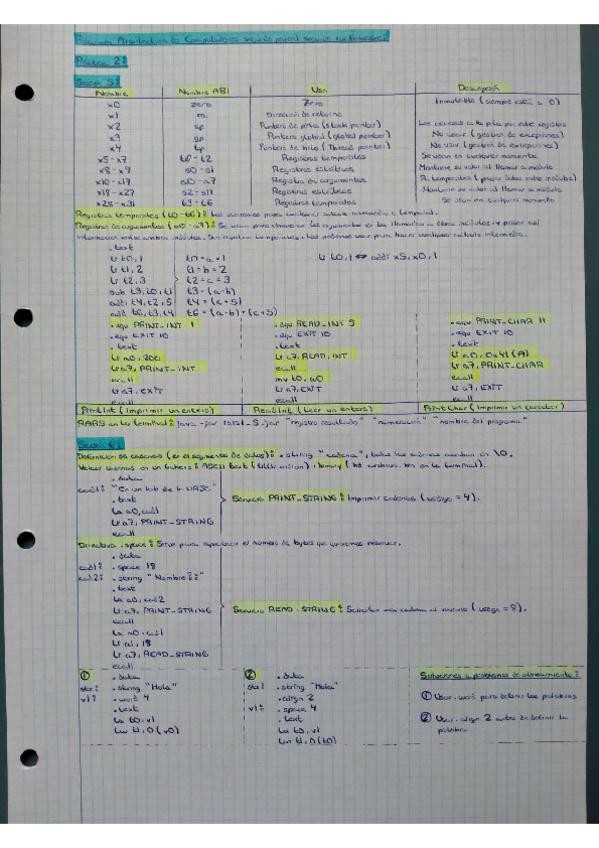 Resumen Arquitectura de Computadores segundo parcial
Práctica 2:
Sesión 5:
Nombre Nombre ABI Uso Descripción
x0 zero Zero Inmutable (siempre está a 0)
x1 ra Dirección de retorno
x2 sp Puntero de pila (stack pointer) Los accesos a la pila por este registro
x3 gp Puntero global (global pointer) No usar (gestion de excepciones)
x4 tp Puntero de hilo (Thread pointer) No usar (gestion de excepciones)
x5-x7 t0-t2 Registros temporales Se usan en cualquier momento
x8-x9 s0-s1 Registros estáticos Mantiene su valor al llamar a módulo
x10-x17 a0-a7 Registros de argumentos R. temporales (pasar datos entre módulos)
x18-x27 s2-s11 Registros estáticos Mantiene su valor al llamar a módulo
x28-x31 t3-t6 Registros temporales Se usan en cualquier momento
Registros temporales (t0-t6): Los usaremos para cualquier cálculo intermedio o temporal.
Registros de argumentos (a0-a7): Se usan para almacenar los argumentos en las llamadas a otros módulos y poder así
intercambiar entre módulos. Son registros temporales. Los podemos usar para hacer cualquier cálculo intermedio.
.text
li t0,1 t0=a=1 li t0,1 ⇔ addi x5,x0,1
li t1,2 t1=b=2
li t2,3 t2=c=3
sub t3,t0,t1 t3=(a-b)
addi t4,t2,5 t4=(c+5)
add t6,t3,t4 t6=(a-b)+(c+5)
.equ PRINT_INT 1 .equ READ_INT 5 .equ PRINT-CHAR 11
.equ EXIT 10 .equ EXIT 10 .equ EXIT 10
.text .text .text
li a0,200 li a7,READ_INT li a0,0x41 (A)
li a7,PRINT_INT ecall li a7,PRINT-CHAR
ecall mv t0,a0 ecall
li a7,EXIT li a7,EXIT li a7,EXIT
ecall ecall ecall
PrintInt (imprimir un entero) ReadInt (Leer un entero) PrintChar (imprimir un caracter)
RARS en la terminal: java -jar rars1_5.jar "registro resultado" "numeración" "nombre del programa"
Sesión 6:
Definición de cadenas (en el segmento de datos): .string "cadena", todas las cadenas acaban en \0.
Volcar cadenas en un fichero: ASCII text (little endian).
.data
cad1: "En un lab de la UASC"
.text
la a0,cad1 Servicio PRINT_STRING: Imprimir cadenas (código = 4).
li a7,PRINT_STRING
ecall
Directiva .space: Sirve para especificar el número de bytes que queremos reservar.
.data
cad1: .space 18
cad2: .string "Nombre:"
.text
la a0,cad2
li a7,PRINT_STRING Servicio READ-STRING: Solicitar una cadena al usuario (código = 8).
ecall
la a0,cad1
li a1,18
li a7,READ_STRING
ecall
① .data ② .data Soluciones a problemas de alineamiento:
str: .string "Hola" str: .string "Hola"
v1: .word 4 .align 2 ① Usar .word para definir las palabras.
.text v1: .space 4
la t0,v1 .text ② Usar .align 2 antes de definir la
lw t1,0(v0) la t0,v1 palabra.
lw t1,0(t0)